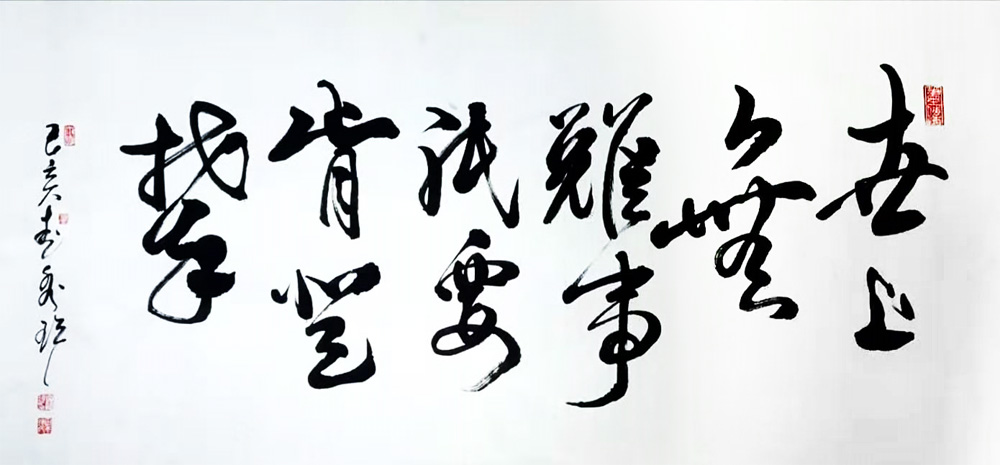 世上
無
難事
祇要
肯登
攀
己亥春